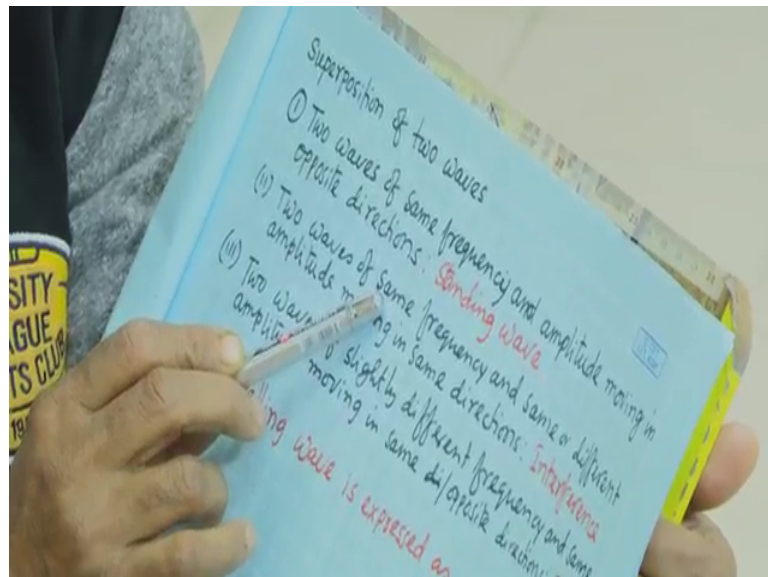 Superposition of two waves
① Two waves of same frequency and amplitude moving in
opposite directions: Standing wave
(ii) Two waves of same frequency and same or different
amplitude moving in same directions: Interference
(iii) Two waves of slightly different frequency and same
moving in same di/opposite direction:
lling wave is expressed as
SITY
AGUE
TS CLUB